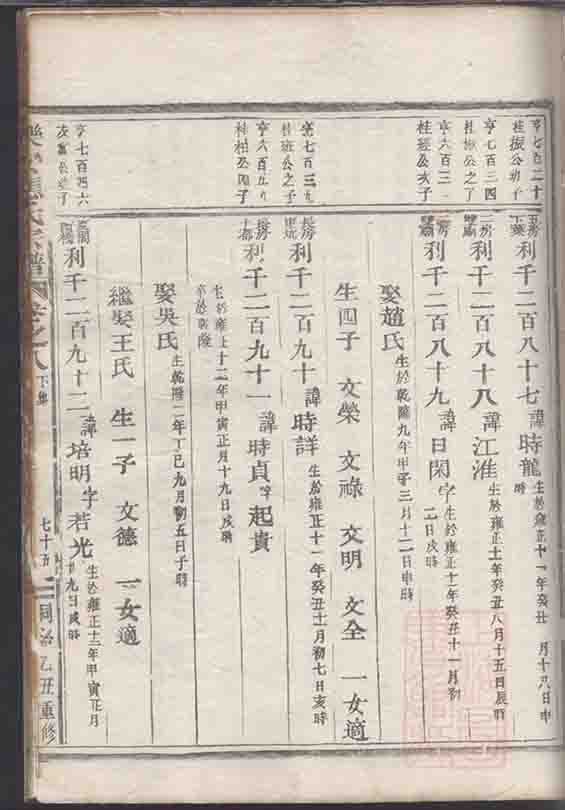 亨七百二十
桂振公幼子
五房
利千二百八十七 諱時龍 生於雍正十一年癸丑 月十八日申時
亨七百三四
桂 公之子
二房
利千二百八十八 諱江淮 生於雍正十一年癸丑八月十五日辰時
亨六百三一
桂班公次子
利千二百八十九 諱日閑 字 生於雍正十一年癸丑十一月初二日戌時
娶趙氏 生於乾隆九年甲子三月十二日申時
生四子 文榮 文祿 文明 文全 一女適
亨七百三九
桂班公之子
長房
利千二百九十 諱時詳 生於雍正十一年癸丑十二月初七日亥時
亨六百五九
桂柏公四子
長房
十都
利千二百九十一 諱時貞 字起貴
生於雍正十二年甲寅正月十九日戌時
卒於乾隆
娶吳氏 生乾隆二年丁巳九月初五日子時
繼娶王氏 生一子 文德 一女適
亨七百四六
利千二百九十二 諱培明 字若光 生於雍正十二年甲寅正月 九日戌時
氏宗譜 卷之八 下集
七十五
同治乙丑重修